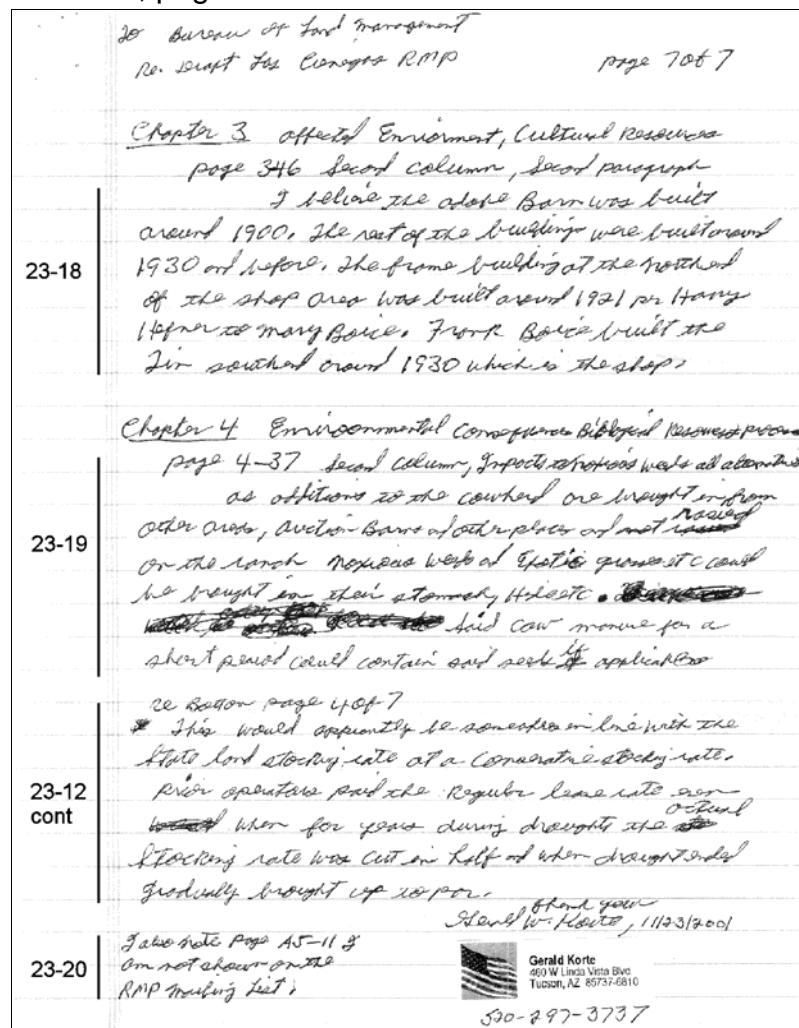 To Bureau of Land Management
Re. Draft Las Cienegas RMP page 7 of 7
Chapter 3 affected Enviorment, Cultural Resources
page 346 Second column, Second paragraph
I believe the adobe Barn was built
around 1900. The rest of the buildings were built around
23-18
1930 and before. The frame building at the north end
of the shop area was built around 1921 pr Harry
Hefner to Mary Boice. Frank Boice built the
Tin south end around 1930 which is the shop.
Chapter 4 Environmental Consequences Biological Resources
page 4-37 Second column, Impacts to noxious weeds all alternatives
as additions to the cowherd are brought in from
other areas, Auction Barns and other places and not raised
23-19
on the ranch noxious weeds and Exotic grasses etc could
be brought in their stomach, Hide etc.
Said cow manure for a
short period could contain said seeds if applicable
re Bottom page 4 of 7
* This would appiantly be somewhere in line with the
State land stocking rate at a Conservative stocking rate.
23-12
cont
Prior operators paid the Regular lease rate even
when for years during droughts the actual
Stocking rate was cut in half and when drought ended
gradually brought up to par.
Thank you
Gerald W. Korte, 11/23/2001
23-20
I also note page A5-11 I
am not shown on the
RMP mailing list.
Gerald Korte
460 W Linda Vista Blvd
Tucson, AZ 85737-6810
520-297-3737